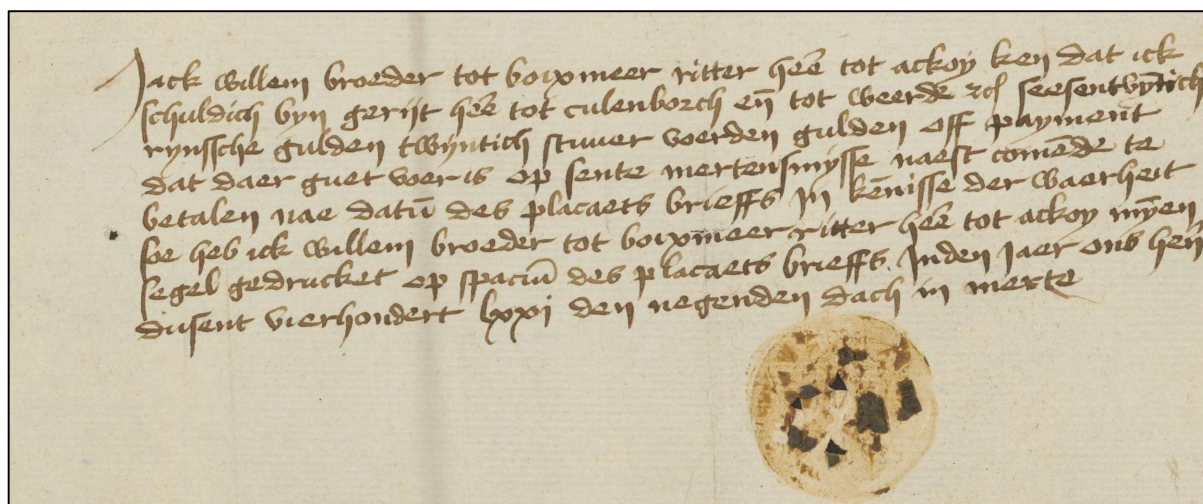 Jack willem broeder tot boixmeer ritter heē tot ackoy ken dat ick
schuldich byn gerijt heē tot culenborch eñ tot weerde seesentvyñtich
rynssche gulden twyntich stuver voerden gulden off payment
dat daer guet voer is op sente mertensmysse naest comēde te
betalen nae datū des placaets brieffs In kēnisse der waerheit
soe heb ick willem broeder tot boixmeer ritter heē tot ackoy myēn
segel gedrucket op spaciū des placaets brieffs Inden Jaer ons heñ
dusent vierhondert lxxi den negenden dach in merte